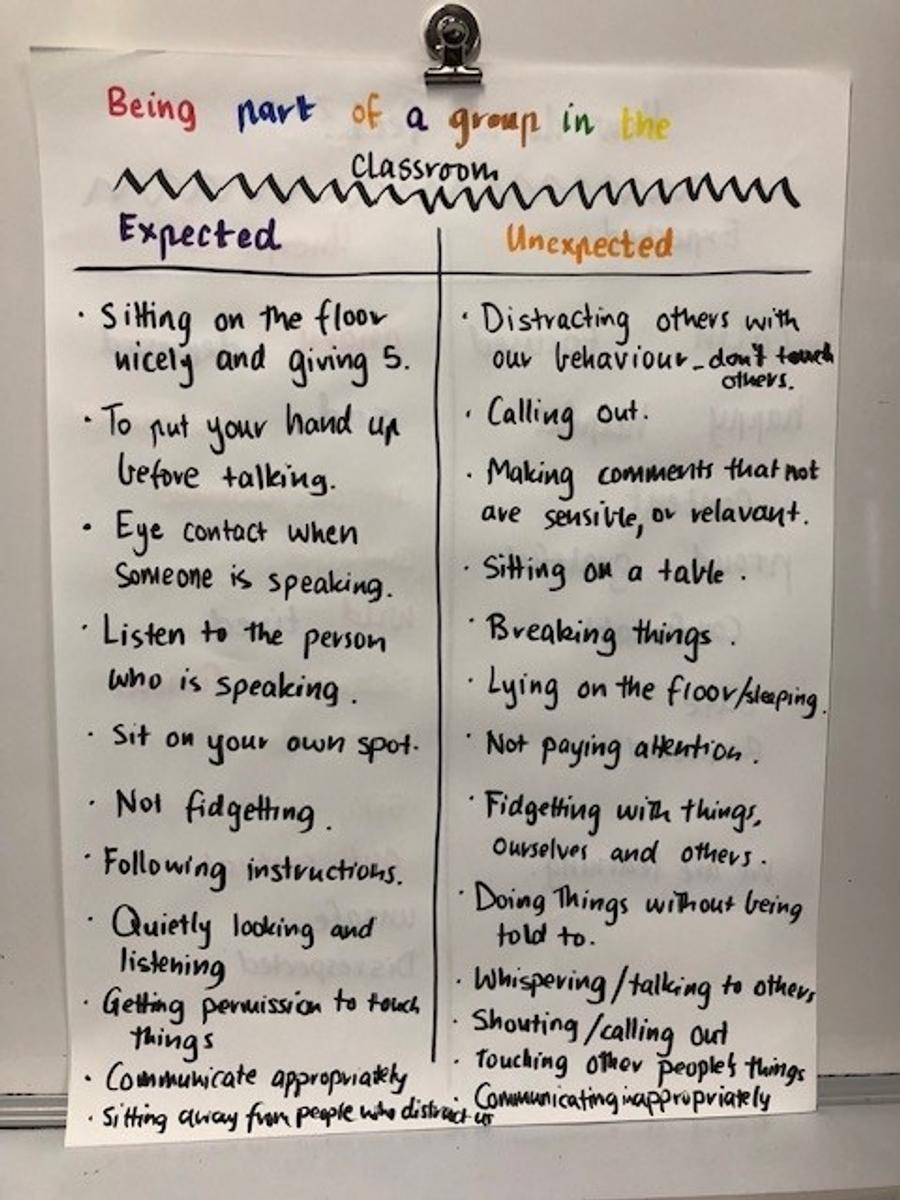 Being part of a group in the
Classroom
Expected
· Sitting on the floor
nicely and giving 5.
· To put your hand up
before talking.
· Eye contact when
someone is speaking.
· Listen to the person
who is speaking.
· Sit on your own spot.
· Not fidgetting.
· Following instructions.
· Quietly looking and
listening
· Getting permission to touch
things
· Communicate appropriately
· Sitting away from people who distract us
Unexpected
· Distracting others with
our behaviour - don't touch
others.
· Calling out.
· Making comments that not
are sensible, or relavant.
· Sitting on a table.
· Breaking things.
· Lying on the floor/sleeping.
· Not paying attention.
· Fidgetting with things,
ourselves and others.
· Doing Things without being
told to.
· Whispering/talking to others,
· Shouting/calling out
· Touching other people's things
· Communicating inappropriately